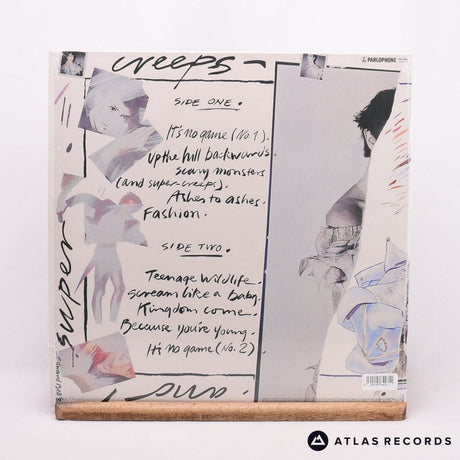 creeps
PARLOPHONE
SIDE ONE.
It's no game (No. 1).
up the hill backwards.
scary monsters
(and super-creeps).
Ashes to ashes.
Fashion.
SIDE TWO.
Teenage Wildlife.
scream like a baby.
Kingdom come.
Because you're young.
It's no game (No. 2)
super
and
ATLAS RECORDS